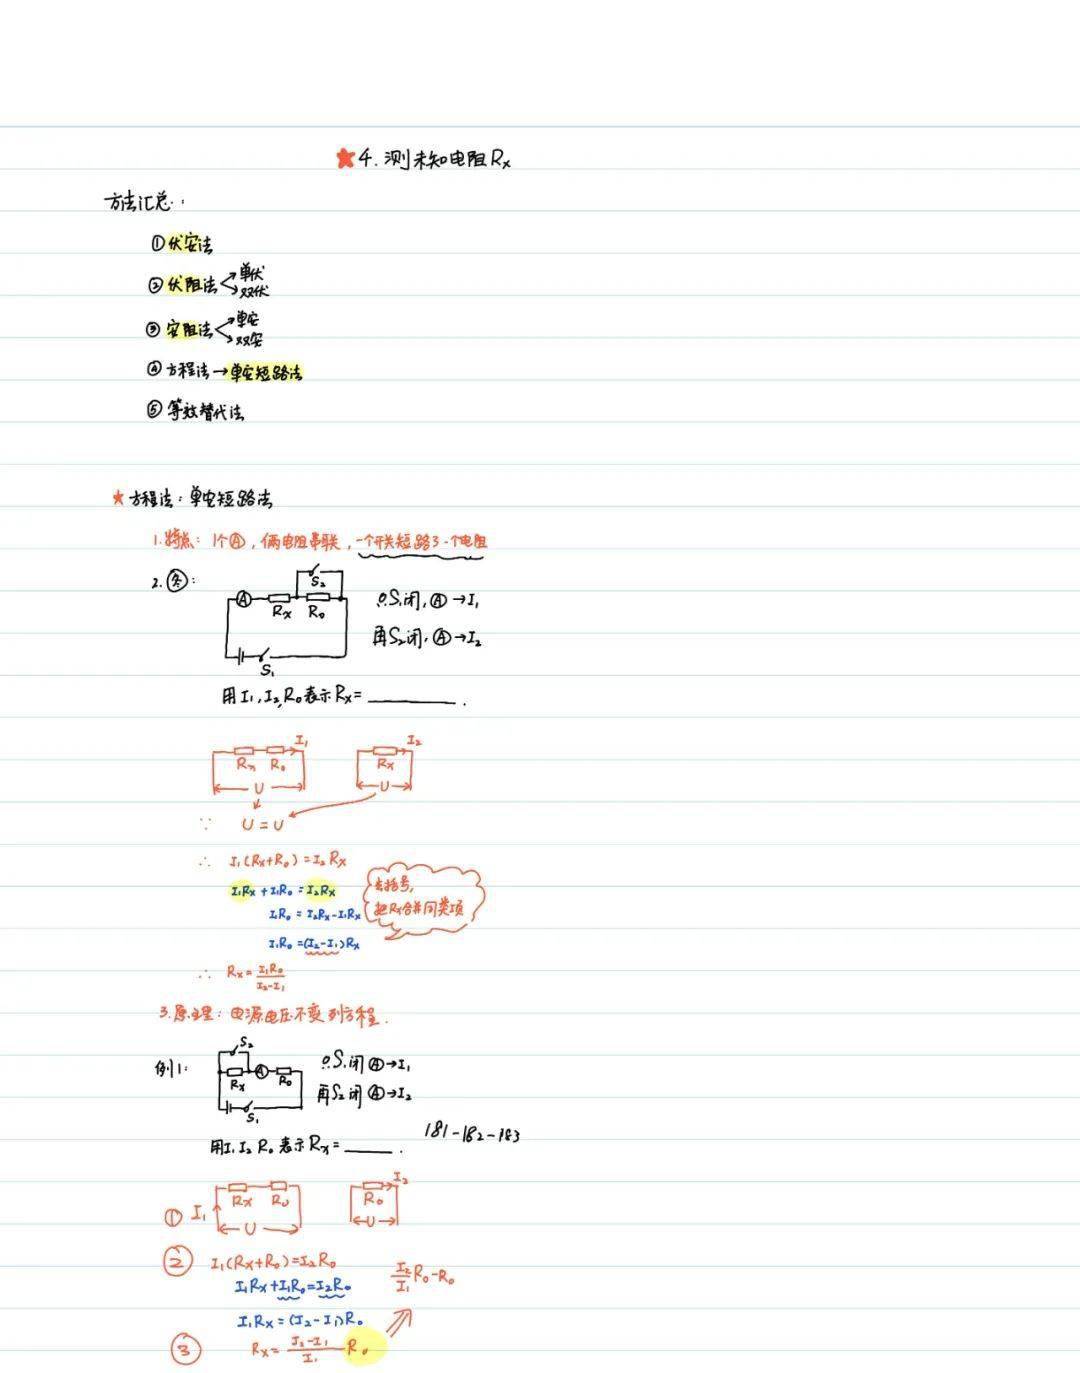 ★4.测未知电阻Rx
方法汇总:
①伏安法
②伏阻法 单伏
双伏
③安阻法 单安
双安
④方程法→单安短路法
⑤等效替代法
★方程法:单安短路法
1.特点:1个Ⓐ,俩电阻串联,一个开关短路了一个电阻
2.图:
S₂
A Rx R₀
只S₁闭,Ⓐ→I₁
再S₂闭,Ⓐ→I₂
S₁
用I₁,I₂,R₀表示Rx=______.
I₁ I₂
Rx R₀ Rx
U U
∵ U=U
∴ I₁(Rx+R₀)=I₂Rx
I₁Rx+I₁R₀=I₂Rx
I₁R₀=I₂Rx-I₁Rx
I₁R₀=(I₂-I₁)Rx
去括号,
把Rx合并同类项
∴ Rx=I₁R₀/(I₂-I₁)
3.原理:电源电压不变列方程.
例1:
S₂
Rx A R₀
S₁
只S₁闭Ⓐ→I₁
再S₂闭Ⓐ→I₂
用I₁ I₂ R₀表示Rx=____.
181-182-183
① I₁ Rx R₀ U
I₂ R₀ U
② I₁(Rx+R₀)=I₂R₀
I₁Rx+I₁R₀=I₂R₀
I₁Rx=(I₂-I₁)R₀
③ Rx=(I₂-I₁)/I₁ R₀
I₂/I₁ R₀-R₀